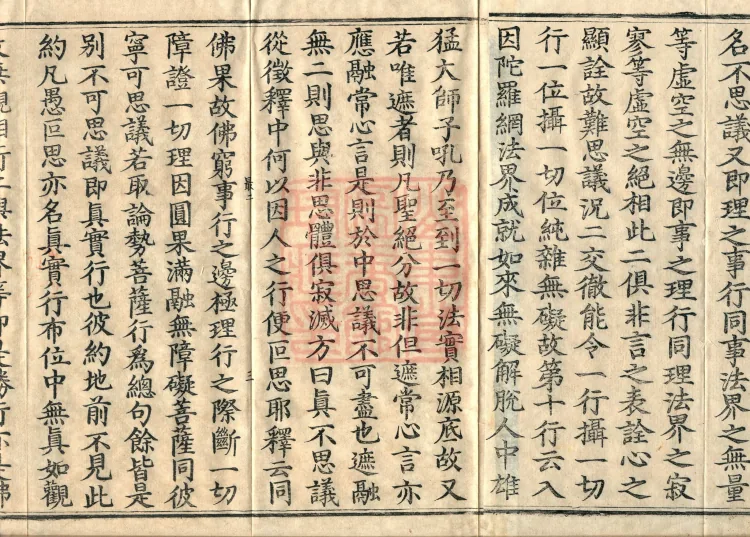 名不思議又即理之事行同事法界之無量
等虛空之無邊即事之理行同理法界之寂
寥等虛空之絕相此二俱非言之表詮心之
顯詮故難思議況二交徹能令一行攝一切
行一位攝一切位純雜無礙故第十行云入
因陀羅網法界成就如來無礙解脫人中雄
猛大師子吼乃至到一切法實相源底故又
若唯遮者則凡聖絕分故非但遮常心言亦
應融常心言是則於中思議不可盡也遮融
無二則思與非思體俱寂滅方曰眞不思議
從徵釋中何以因人之行便叵思耶釋云同
最二 三
佛果故佛窮事行之邊極理行之際斷一切
障證一切理因圓果滿融無障礙菩薩同彼
寧可思議若取論勢菩薩行爲總句餘皆是
別不可思議即眞實行也彼約地前不見此
約凡愚叵思亦名眞實行布位中無眞如觀